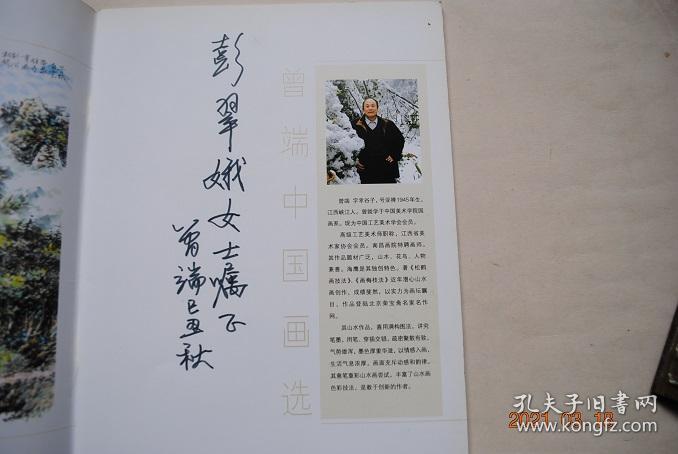 彭翠娥女士嘱正
曾端己丑秋
曾端中国画选
曾端 字翠谷子,号亚禅1945年生。
江西峡江人。曾就学于中国美术学院国
画系。现为中国工艺美术学会会员。
高级工艺美术师职称,江西省美
术家协会会员。南昌画院特聘画师。
其作品题材广泛,山水、花鸟、人物
兼善。海鹰是其独创特色。著《松鹤
画技法》、《画梅技法》近年潜心山水
画创作,成绩斐然,以实力为画坛瞩
目。作品登陆北京荣宝斋名家名作
网。
其山水作品,喜用满构图法,讲究
笔墨,用笔、穿插交错,疏密聚散有致。
气势雄浑,墨色厚重华滋,以情感入画,
生活气息浓厚。画面充斥动感和韵律。
其重笔重彩山水画尝试,丰富了山水画
色彩技法,是敢于创新的作者。
孔夫子旧书网
www.kongfz.com
2021.03.12